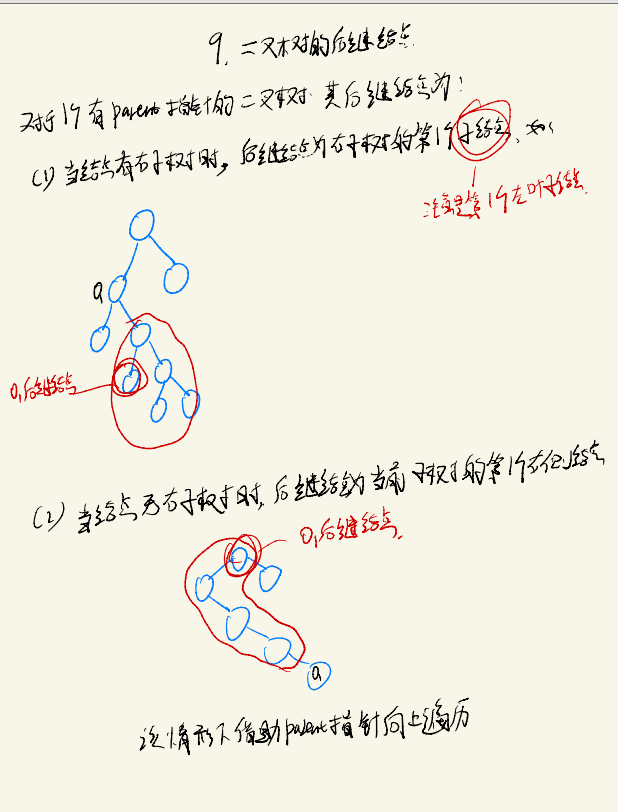 9. 二叉树的后继结点
对于1个有parent指针的二叉树 其后继结点为：
(1) 当结点有右子树时，后继结点为右子树的第1个子结点、如
注意是第1个左叶子结点
a
a,后继结点
(2) 当结点无右子树时，后继结点为当前子树的第1个右侧结点
a,后继结点
a
该情形下借助parent指针向上遍历